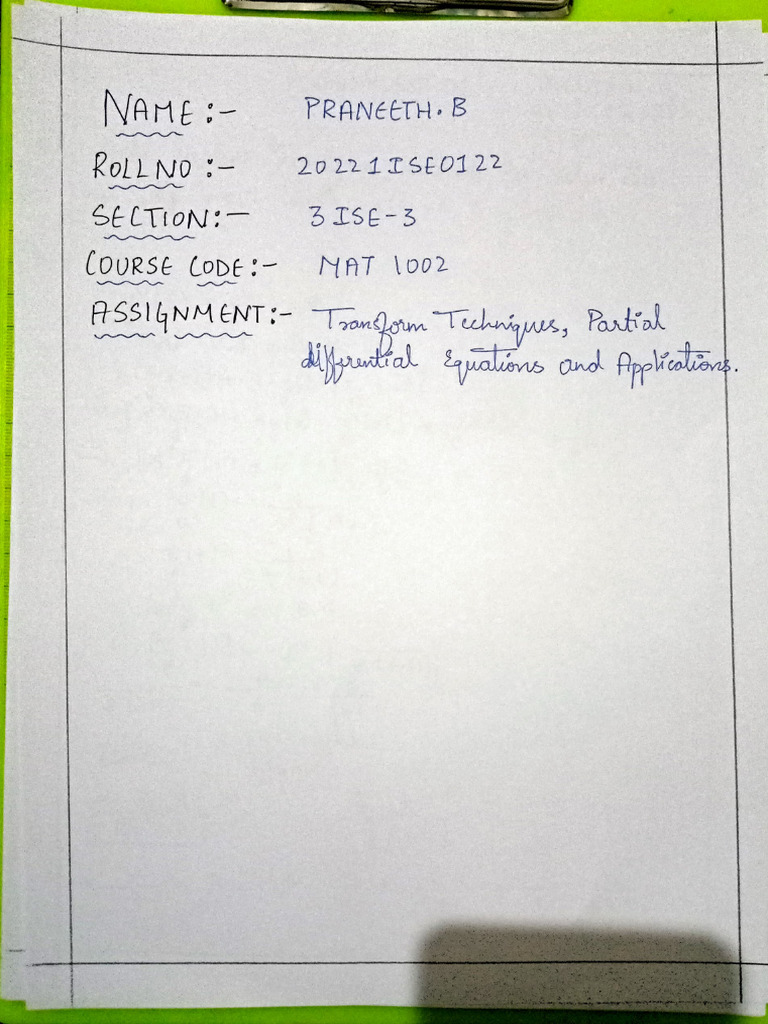 NAME :- PRANEETH. B
ROLLNO :- 20221ISE0122
SECTION:- 3 ISE-3
COURSE CODE:- MAT 1002
ASSIGNMENT:- Transform Techniques, Partial
differential Equations and Applications.